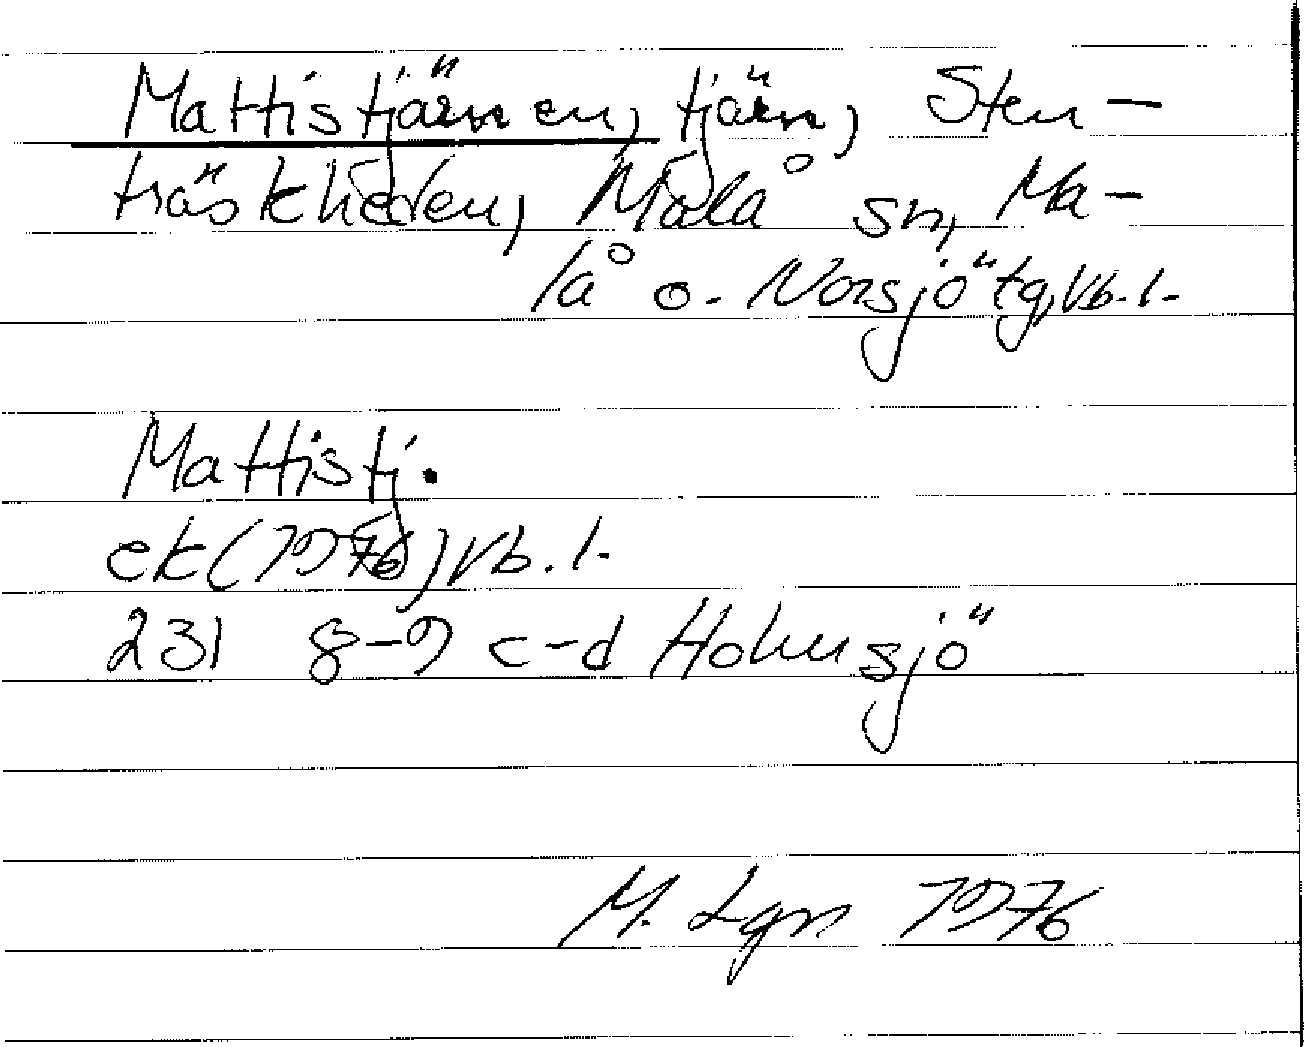 Mattistjärnen, tjärn, Sten-
träskheden, Malå sn, Ma-
lå o. Norsjö tg, Vb. l.
Mattistj.
ek (1976) Vb. l.
231 8-9 c-d Holmsjö
M. Lgn 1976